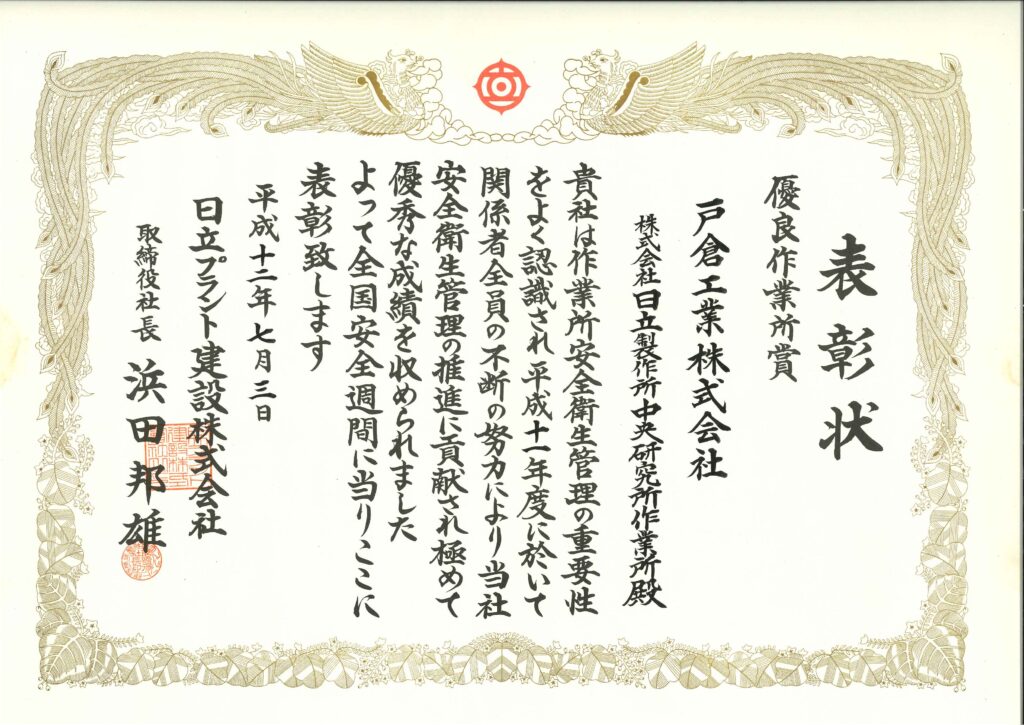 表彰状
優良作業所賞
戸倉工業株式会社
株式会社日立製作所中央研究所作業所殿
貴社は作業所安全衛生管理の重要性
をよく認識され平成十一年度に於いて
関係者全員の不断の努力により当社
安全衛生管理の推進に貢献され極めて
優秀な成績を収められました
よって全国安全週間に当りここに
表彰致します
平成十二年七月三日
日立プラント建設株式会社
取締役社長 浜田邦雄